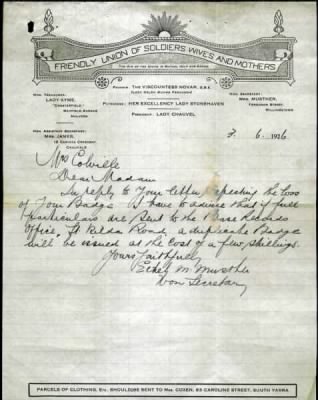 FRIENDLY UNION OF SOLDIERS WIVES AND MOTHERS
Patron: THE VISCOUNTESS NOVAR, G.B.E.
(LADY HELEN MUNRO FERGUSON)
Patroness: HER EXCELLENCY LADY STONEHAVEN
President: LADY CHAUVEL
HON. TREASURER:
LADY SYME,
MALVERN
HON. ASSISTANT SECRETARY:
MRS. JAMES,
CAULFIELD
HON. SECRETARY:
MRS. MUSTHER,
FERGUSON STREET,
WILLIAMSTOWN
3. 6. 1926
Mrs Colville
Dear Madam
In reply to Your letter respecting the loss
of Your Badge I have to advise that if full
particulars are sent to the Base Records
Office, St Kilda Road, a duplicate Badge
will be issued at the cost of a few shillings.
Yours Faithfully
Ethel M. Musther
Hon Secretary
PARCELS OF CLOTHING, Etc. SHOULD BE SENT TO Mrs. COHEN, 83 CAROLINE STREET, SOUTH YARRA